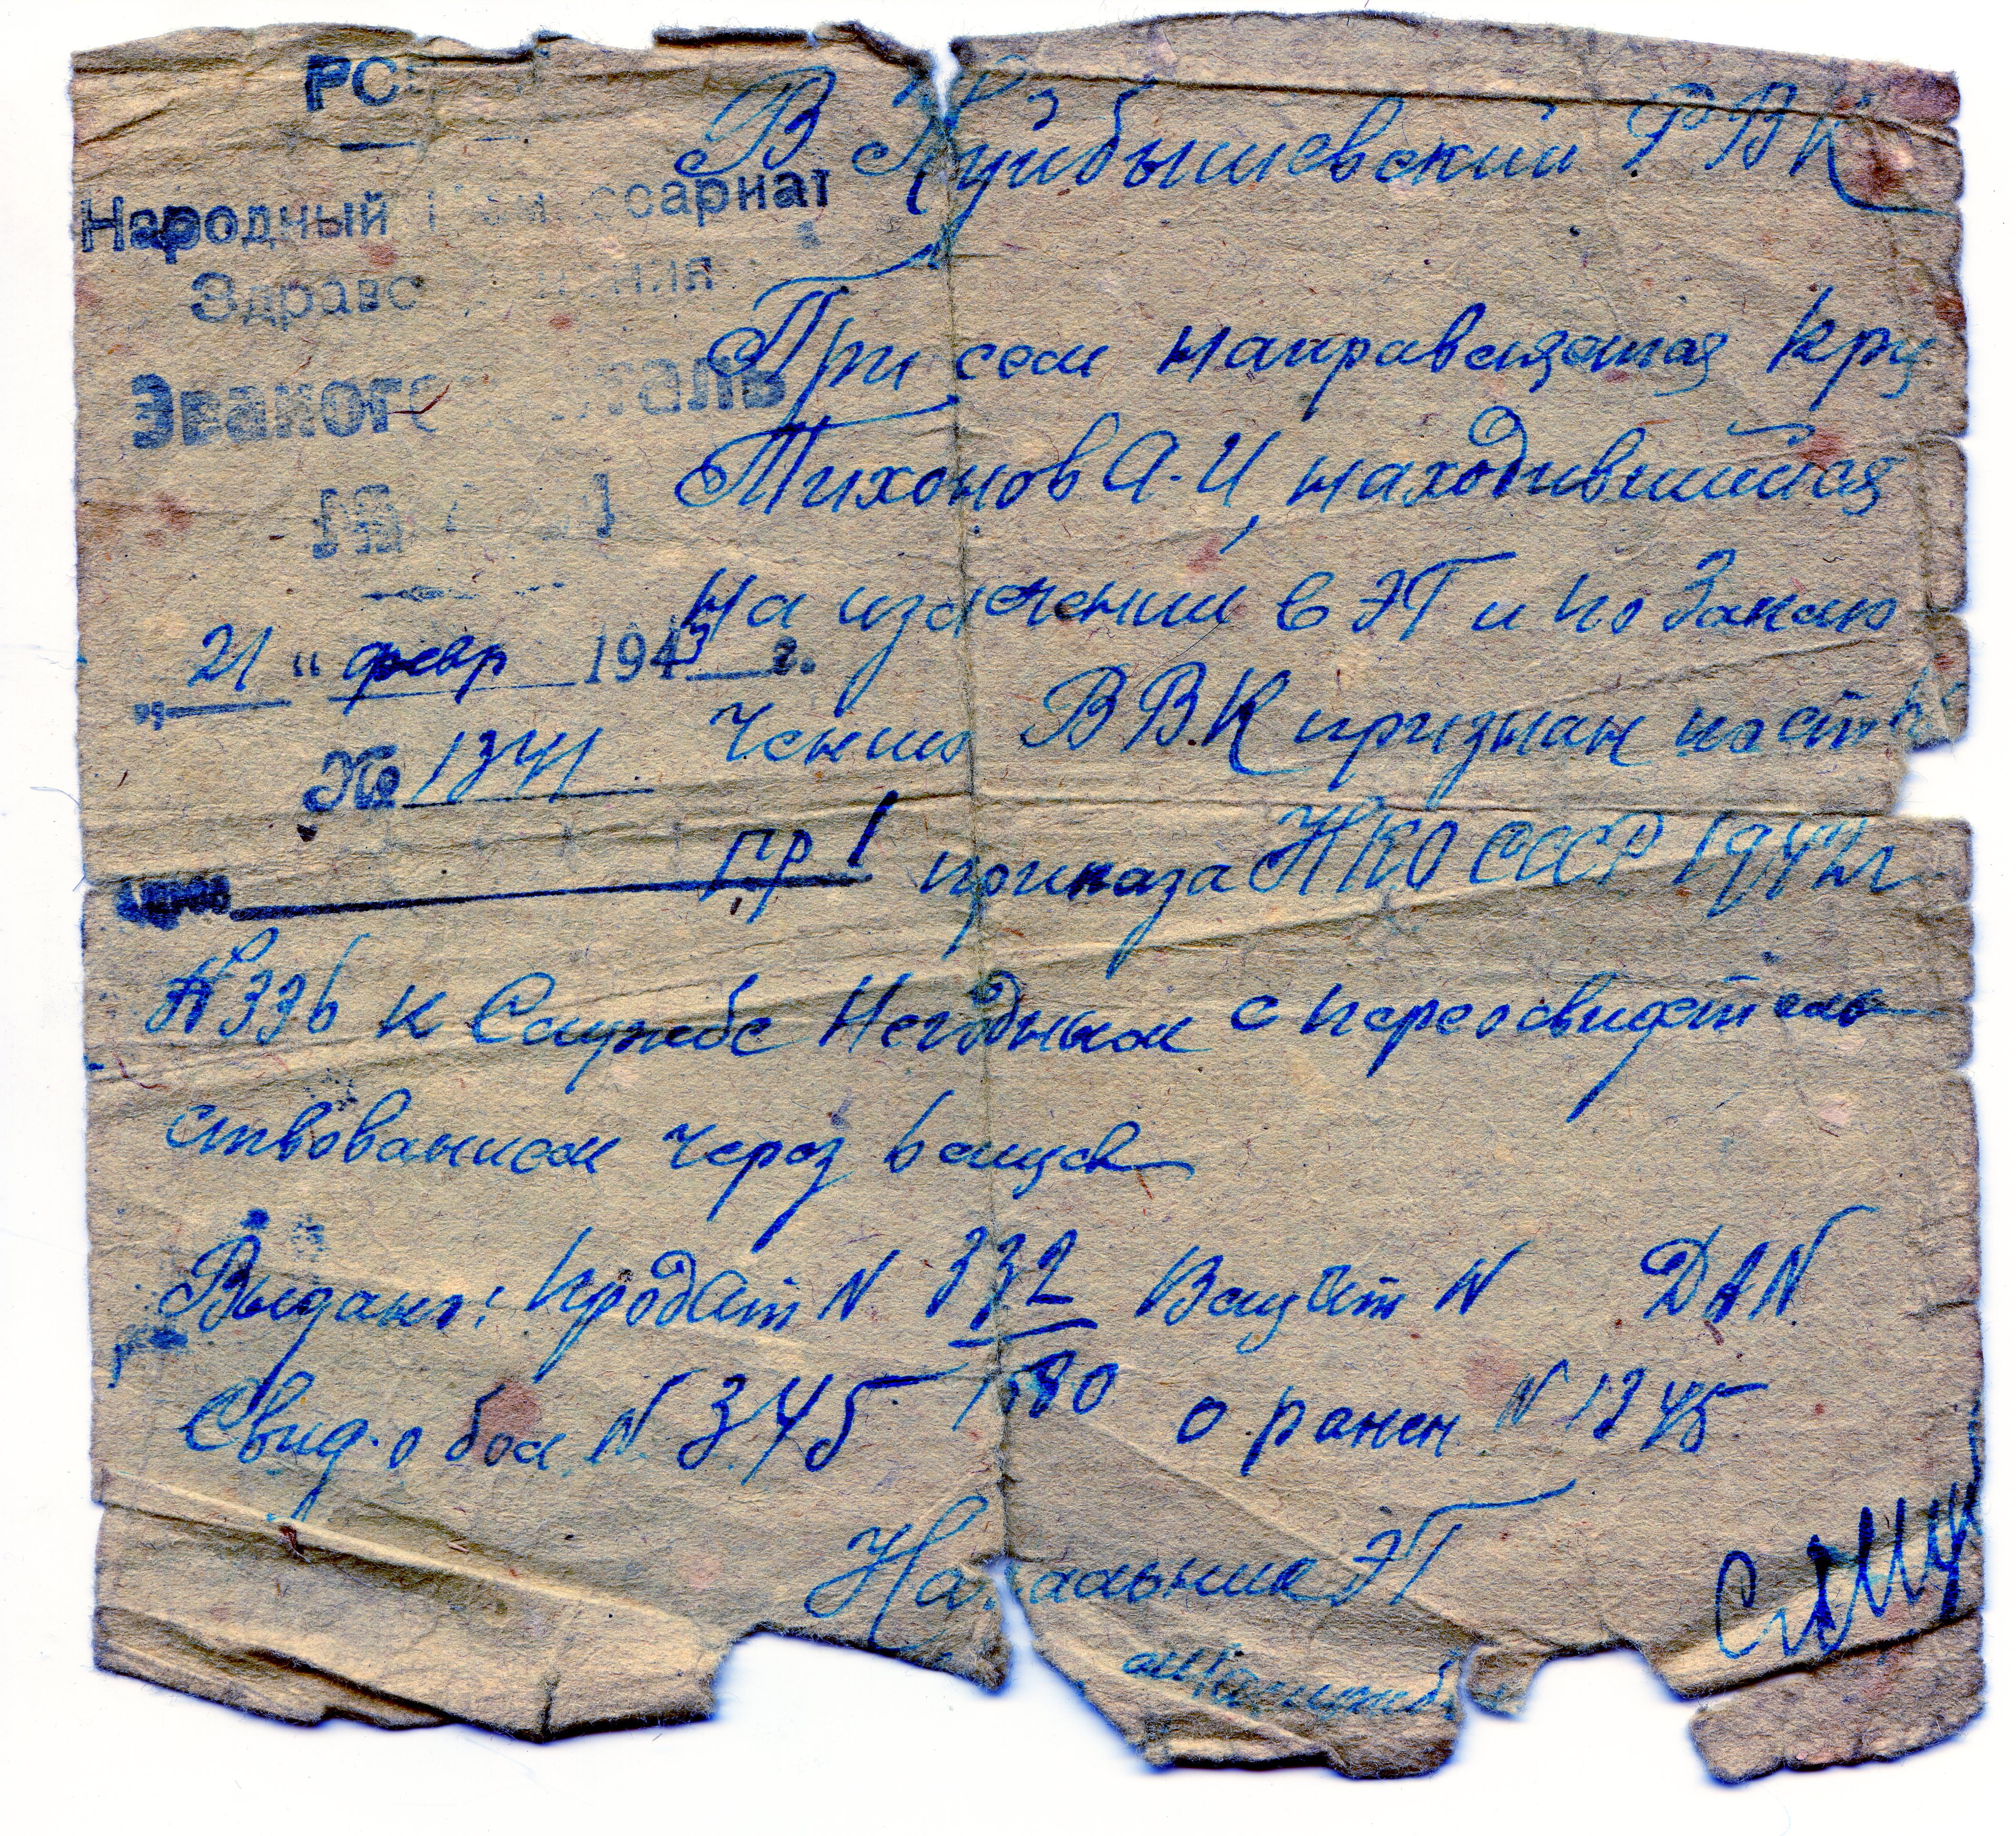 РС
Народный Комиссариат
Здравоохранения
Эвакогоспиталь
№
„ 21 " февр 1943 г.
№ 1341
В Куйбышевский РВК
При сем направляется кр-ц
Тихонов А.И, находившийся
на излечении в ЭГ и по заклю
чению ВВК признан по ст
гр 1 приказа НКО СССР 1942г
№ 336 к службе негодным с переосвидетель
ствованием через 6 мцев
Выдано: продат N 332 Вещат N ДАN
1580
Свид. о бол. N 345 о ранен N 1345
Начальник ЭГ